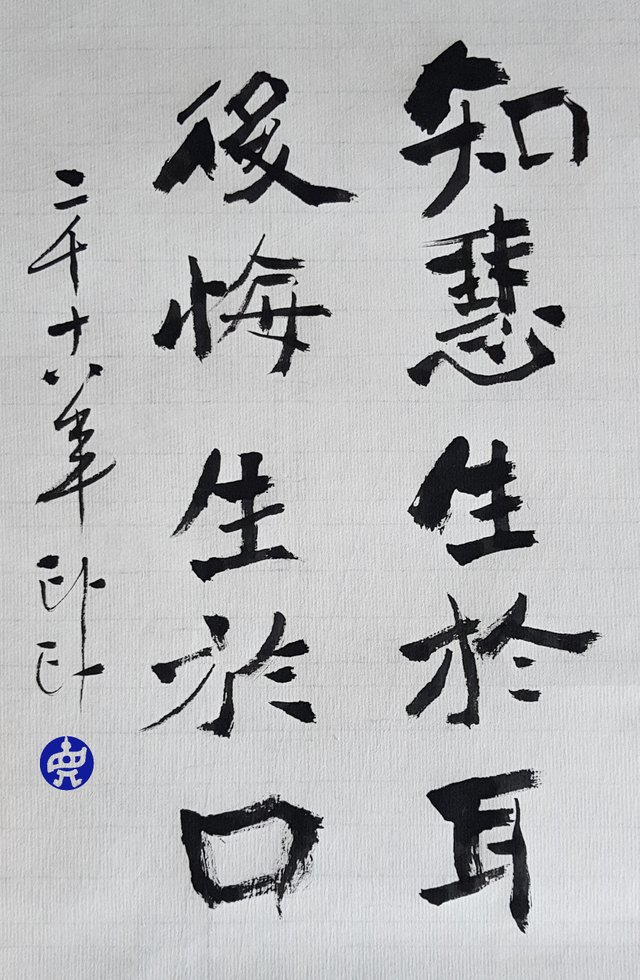 知慧生於耳
後悔生於口
二千十八年